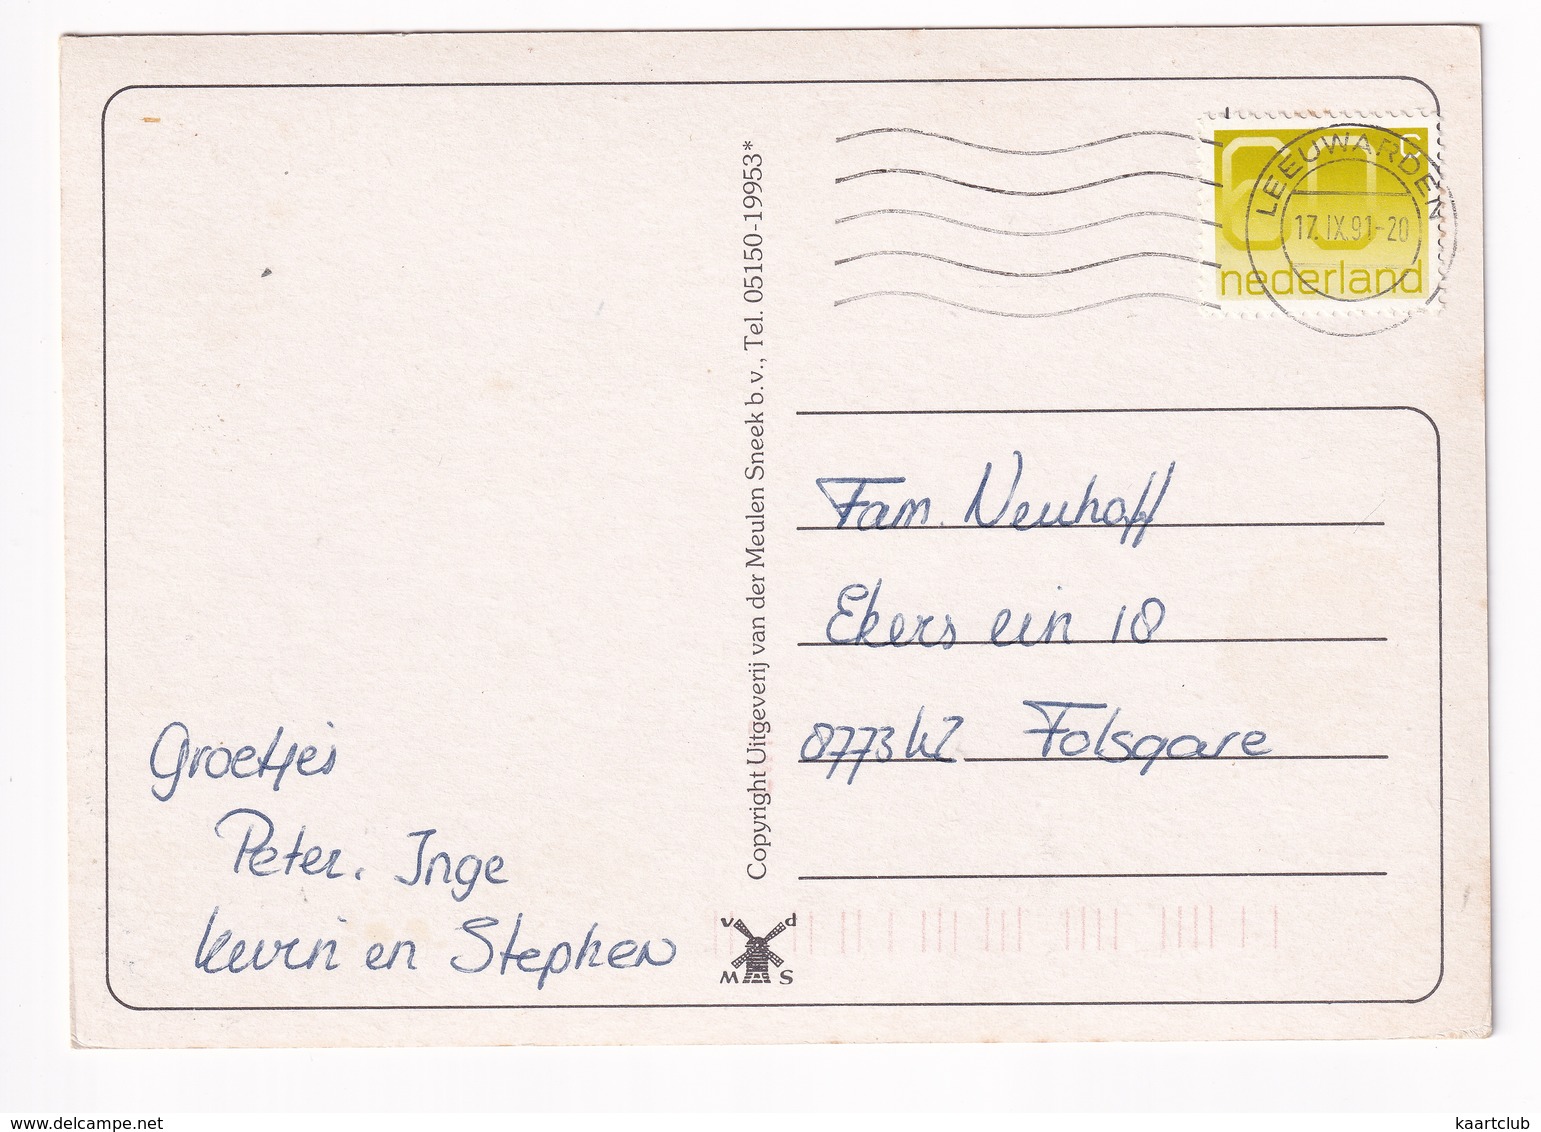 60 c
nederland
LEEUWARDEN
17.IX.91-20
Copyright Uitgeverij van der Meulen Sneek b.v., Tel. 05150-19953*
Fam. Neuhoff
Ekers ein 18
8773 KZ Folsgare
Groetjes
Peter. Inge
Kevin en Stephen
v d
M S
www.delcampe.net
kaartclub